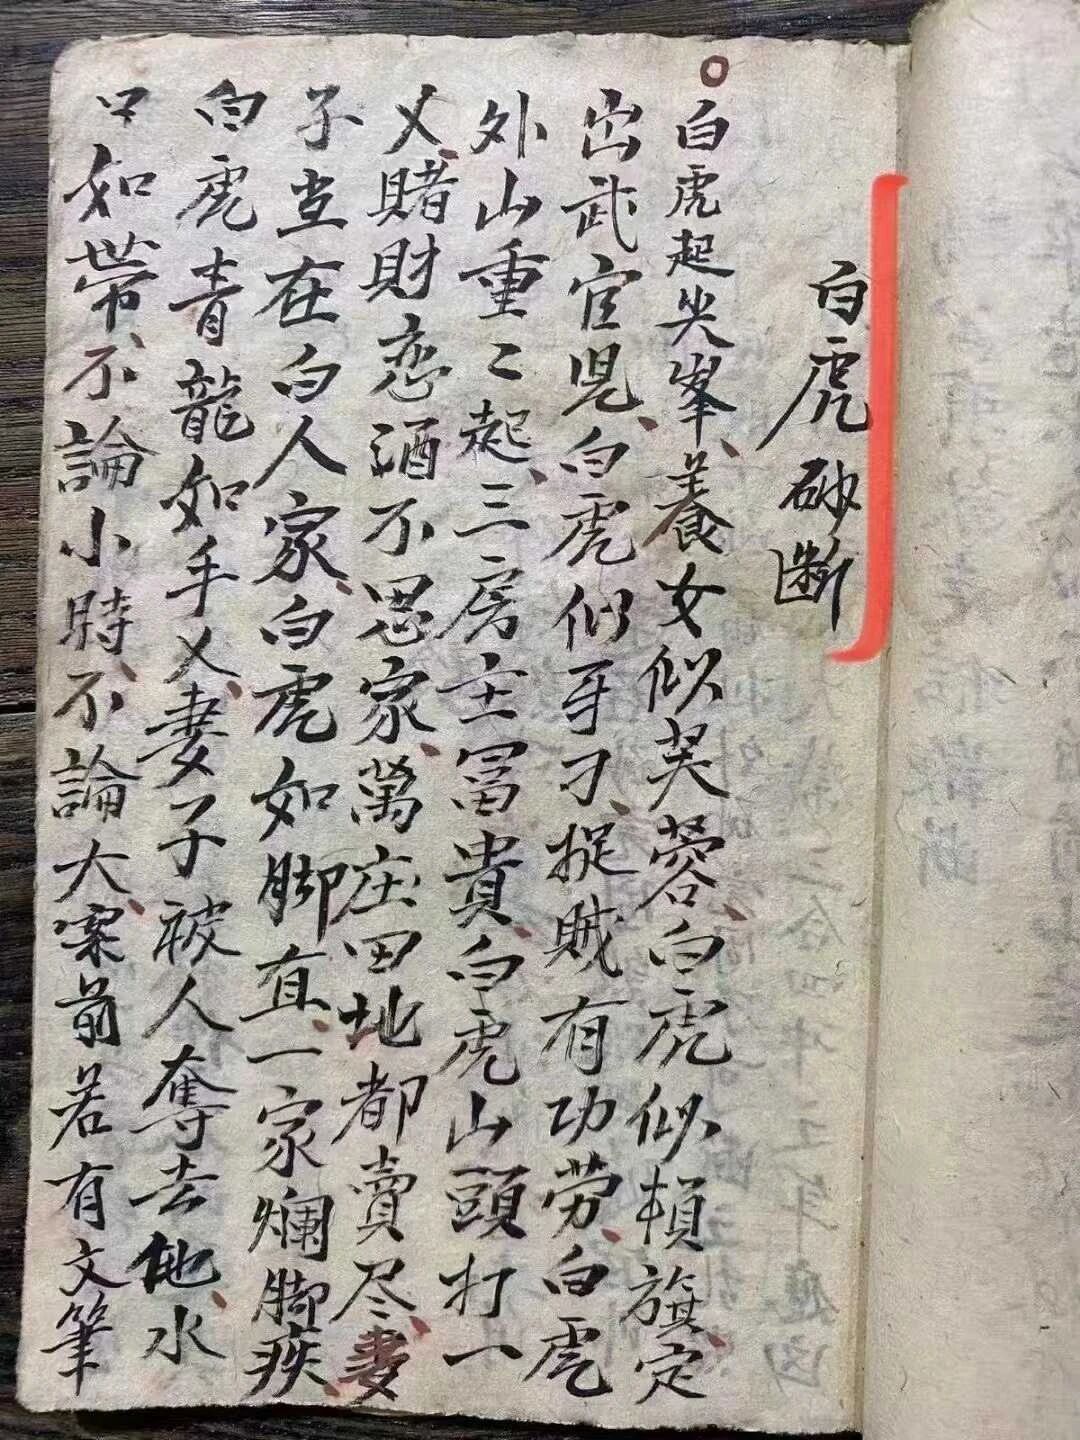 白虎砂斷
白虎起尖峯、養女似芙蓉、白虎似頓旗、定
出武官児、白虎似牙刀、捉賊有功劳、白虎
外山重〻起、三房主冨貴、白虎山頭打一
乂、賭財恋酒不思家、萬庄田地都賣尽、妻
子坐在白人家、白虎如脚直、一家爛脚疾、
白虎青龍如手乂、妻子被人奪去他、水
口如帶、不論小時、不論大、案前若有文筆